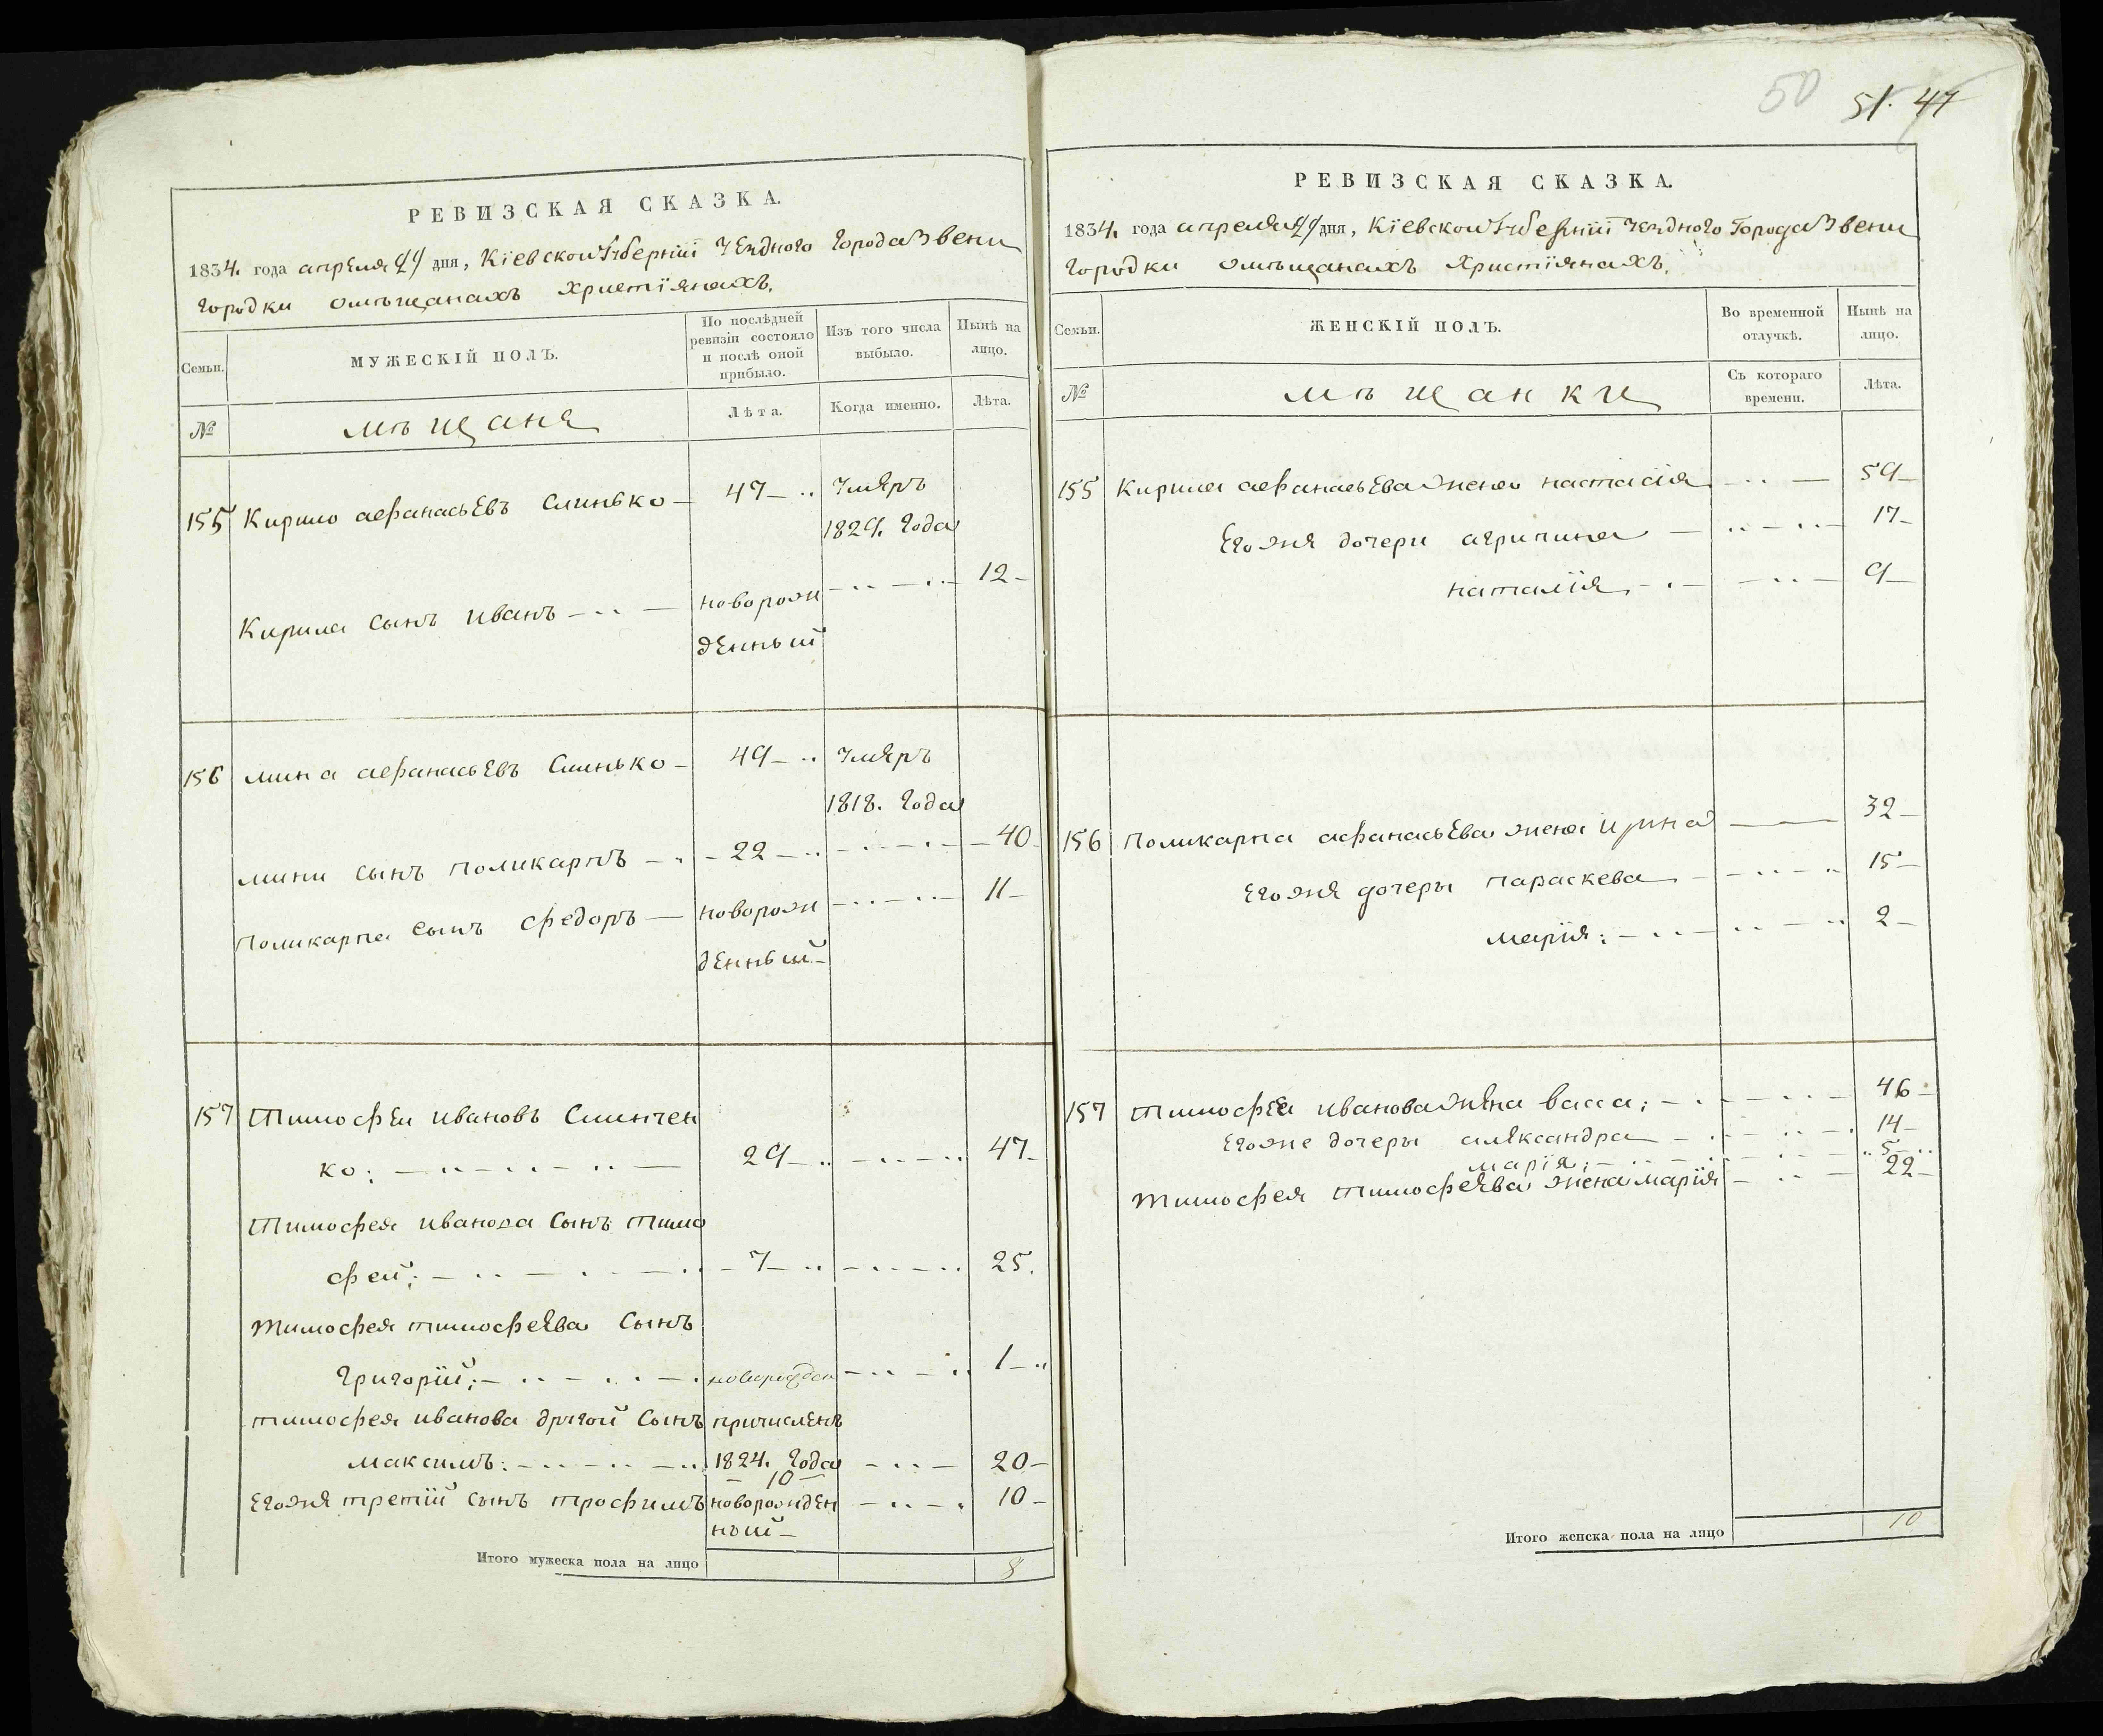 50 51. 47
РЕВИЗСКАЯ СКАЗКА.
1834. года апреля дня, Кіевской Губерніи уездного города Звени
городки омѣщанахъ христіянахъ.
Семьи.
МУЖЕСКІЙ ПОЛЪ.
По послѣдней ревизіи состояло и послѣ оной прибыло.
Изъ того числа выбыло.
Нынѣ на лицо.
№
мѣщаня
Лѣта.
Когда именно.
Лѣта.
155 Кирило афанасьевъ Слинько — 47 — умяръ
1829. года
Кирила сынъ иванъ — новорож — 12 —
денный
156 мина афанасьевъ Слинько — 49 — умяръ
1818. года
мини сынъ поликарпъ — 22 — 40
поликарпа сынъ федоръ — новорож — 11 —
денный —
157 Тимофеи ивановъ Слинчен
ко: — 29 — 47
Тимофея иванова сынъ тимо
фей; — 7 — 25.
Тимофея тимофеева сынъ
григорій; — новорожден — 1 —
тимофея иванова другой сынъ причисленъ
максимъ: — 1824. года — 20 —
10
егожя третій сынъ трофимъ новорожден — 10 —
ный —
Итого мужеска пола на лицо 8
РЕВИЗСКАЯ СКАЗКА.
1834. года апреля дня, Кіевской Губерніи уездного Города Звени
городки омѣщанахъ христіянахъ.
Семьи.
ЖЕНСКІЙ ПОЛЪ.
Во временной отлучкѣ.
Нынѣ на лицо.
№
мѣщанки
Съ котораго времени.
Лѣта.
155 Кирила афанасьева жена настасія — 59 —
Егожя дочери агрипина — 17 —
наталія — 9 —
156 поликарпа афанасьева жена ирина — 32 —
Егожя дочеры параскева — 15 —
марія: — 2 —
157 тимофея иванова жена васса; — 46 —
Егоже дочеры александра — 14 —
марія; — 5 —
тимофея тимофеева жена марія — 22 —
Итого женска пола на лицо 10